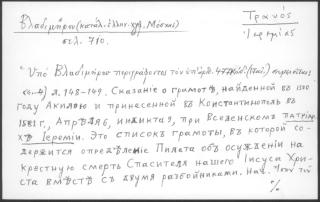 Βλαδιμήρου (κατάλ. ἑλλην. χφ, Μόσχας)
σελ. 710.
Τρανός
Ἱερεμίας
"Ὑπὸ Βλαδιμήρου περιγράφονται τὸν ὑπ' ἀριθ.
λ. 148-149. Сказанiе о грамотѣ, найденной въ 1200
году Акилою и принесенной въ Константинополь въ
1581 г., Апрѣля 6, индикта 9, при Вселенскомъ патріар-
хѣ Іереміи. Это списокъ грамоты, въ которой со-
держится опредѣленіе Пилата объ осужденіи на
крестную смерть Спасителя нашего Іисуса Хри-
ста вмѣстѣ съ двумя разбойниками. Нач.
%